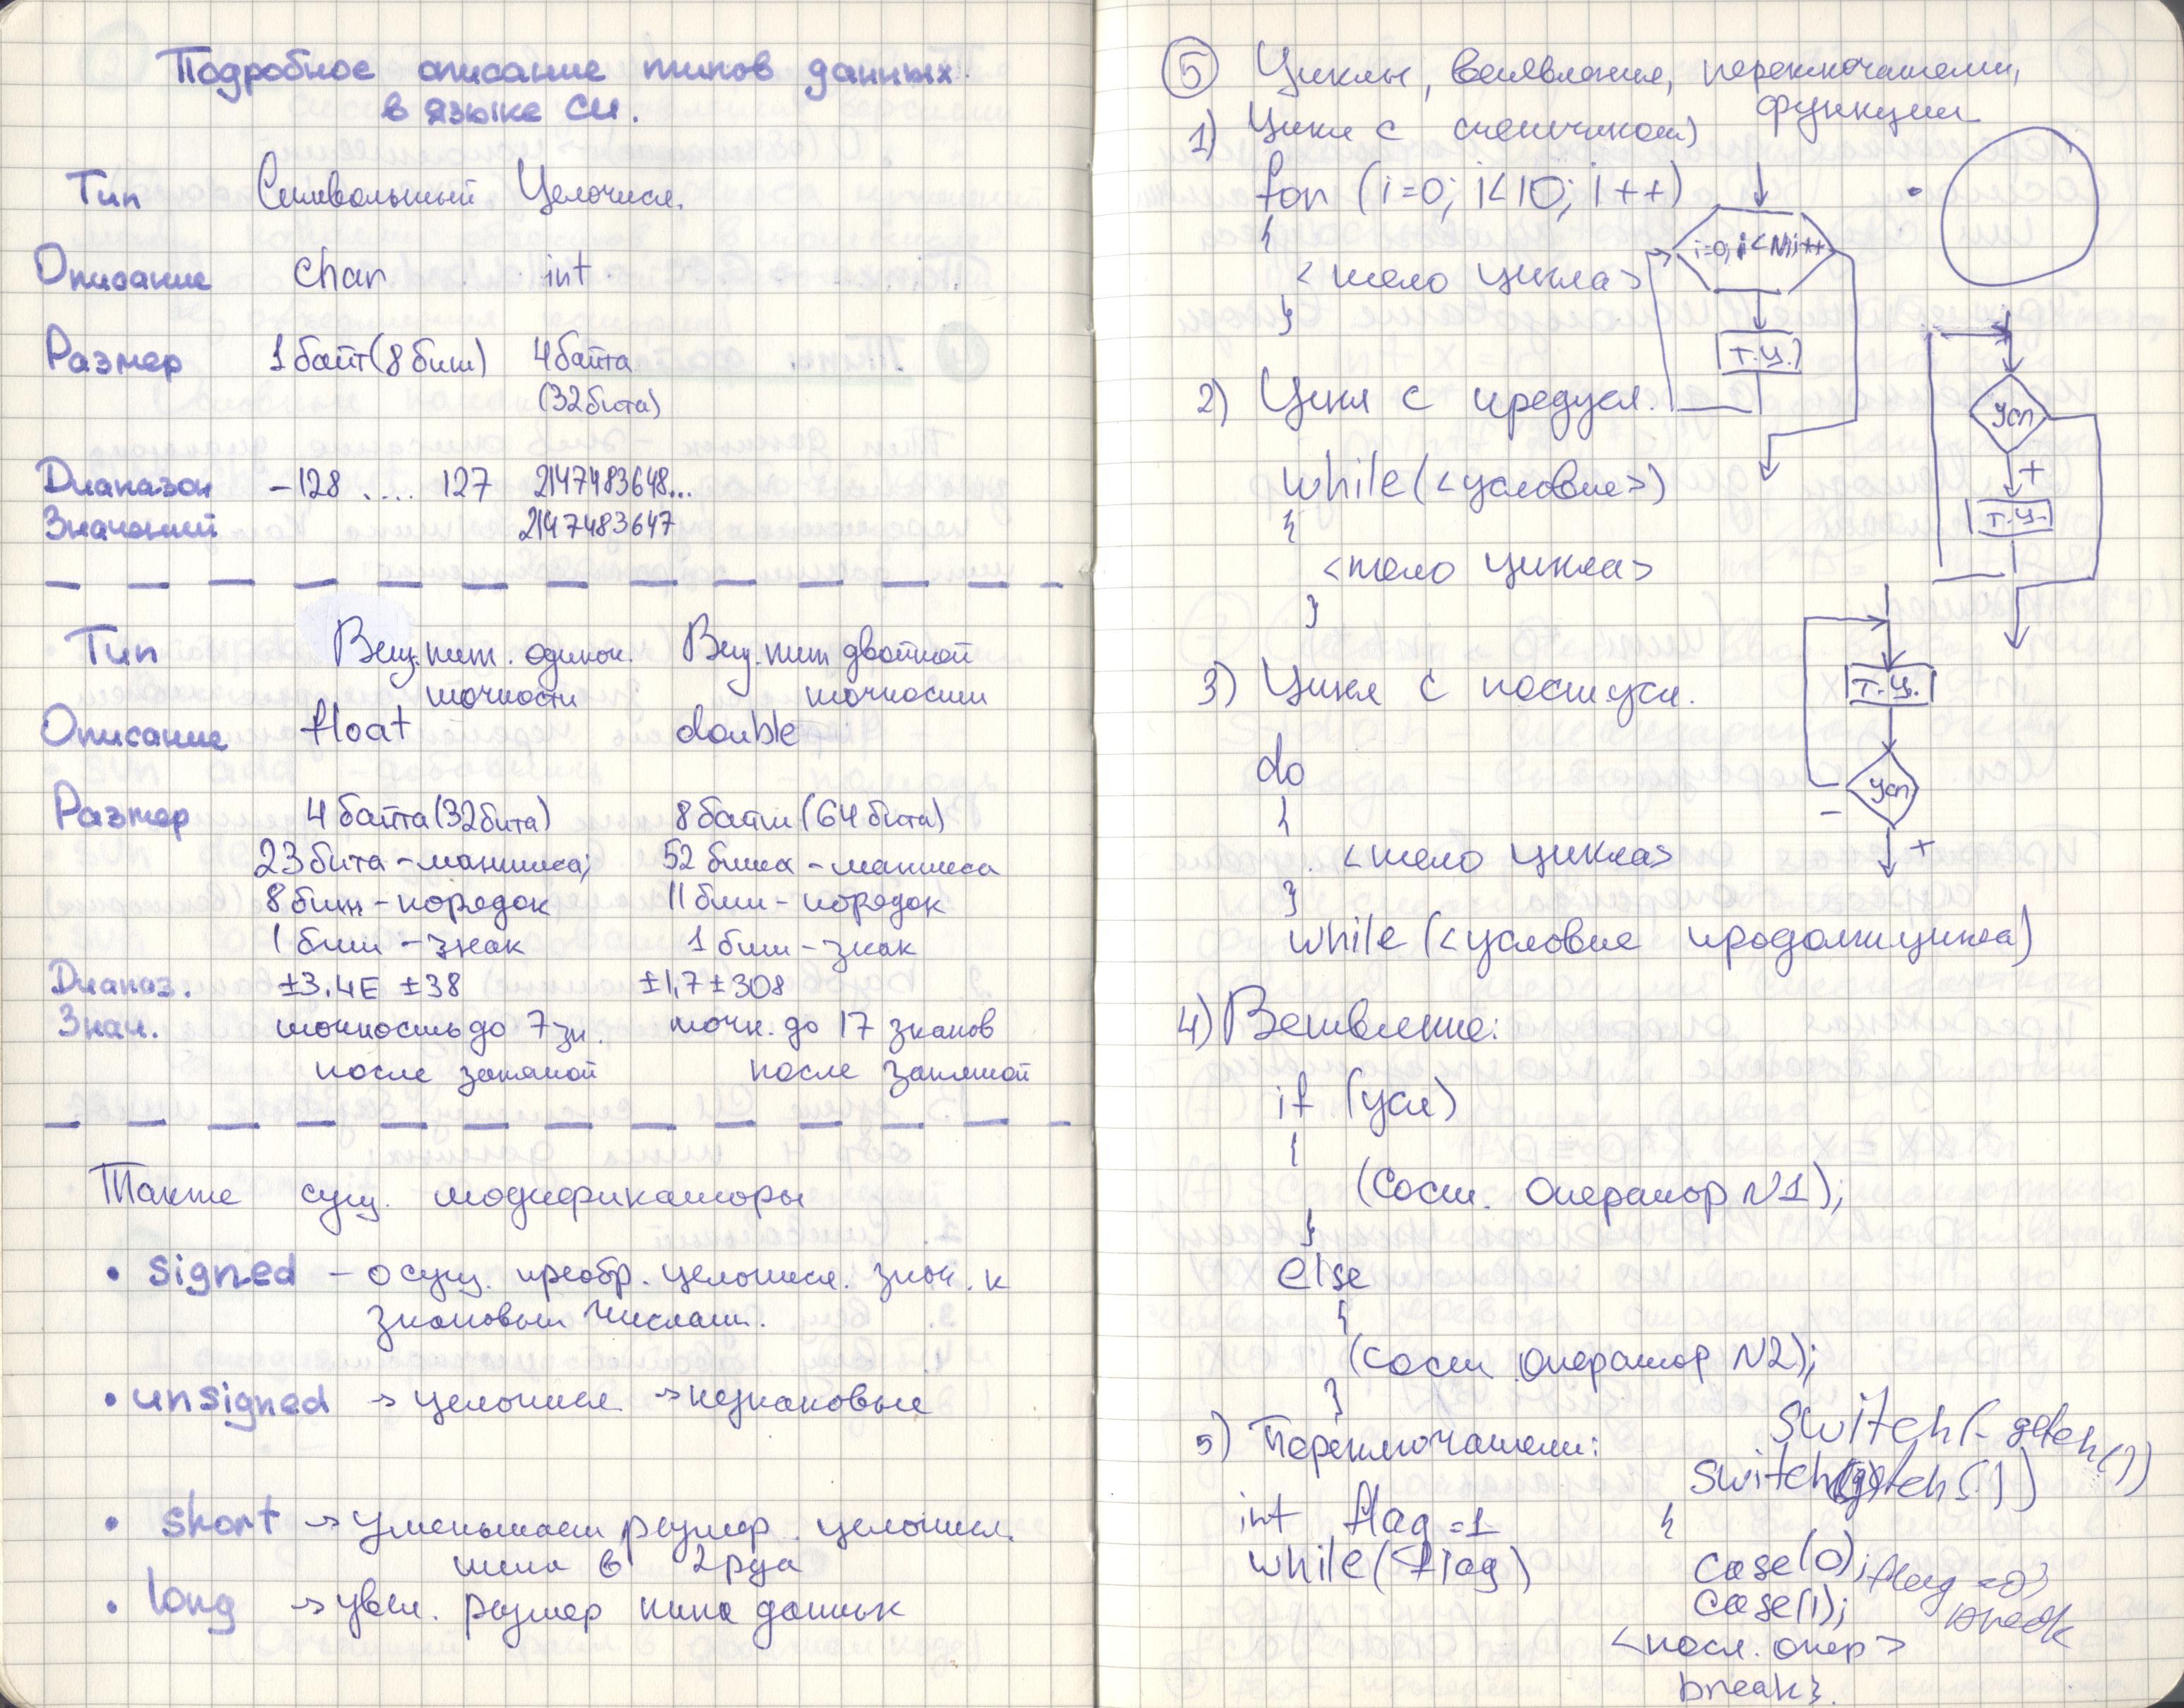 Подробное описание типов данных
в языке СИ.
Тип Символьный Целочисл.
Описание char int
Размер 1 байт (8 бит) 4 байта
(32 бита)
Диапазон -128 .... 127 2147483648...
Значений 2147483647
Тип Вещ. тип. одинок. Вещ. тип двойной
точности точности
Описание float double
Размер 4 байта (32 бита) 8 байт (64 бита)
23 бита - мантисса; 52 бита - мантисса
8 бит - порядок 11 бит - порядок
1 бит - знак 1 бит - знак
Диапаз. ±3.4E ±38 ±1,7 ±308
Знач. точность до 7 зн. точн. до 17 знаков
после запятой после запятой
Также сущ. модификаторы
• signed - осущ. преобр. целочисл. знач. к
знаковым числам.
• unsigned → целочисл → незнаковые
• short → уменьшает размер целочисл.
типа в 2 раза
• long → увел. размер типа данных
5 Циклы, ветвления, переключатели,
функции
1) Цикл с счетчиком)
for (i=0; i<10; i++)
{
<тело цикла>
}
i=0; i<N; i++
т.ц.
2) Цикл с предусл.
while(<условие>)
{
<тело цикла>
}
усл
+
т.ц.
3) Цикл с постусл.
do
{
<тело цикла>
}
while (<условие продолж цикла)
т.ц.
усл
-
+
4) Ветвление:
if (усл)
{
(сост. оператор N1);
}
else
{
(сост оператор N2);
}
5) Переключатели:
int flag =1
while(flag)
switch(-getch())
{
case(0); flag =0;
case(1); break
<посл. опер>
break}.